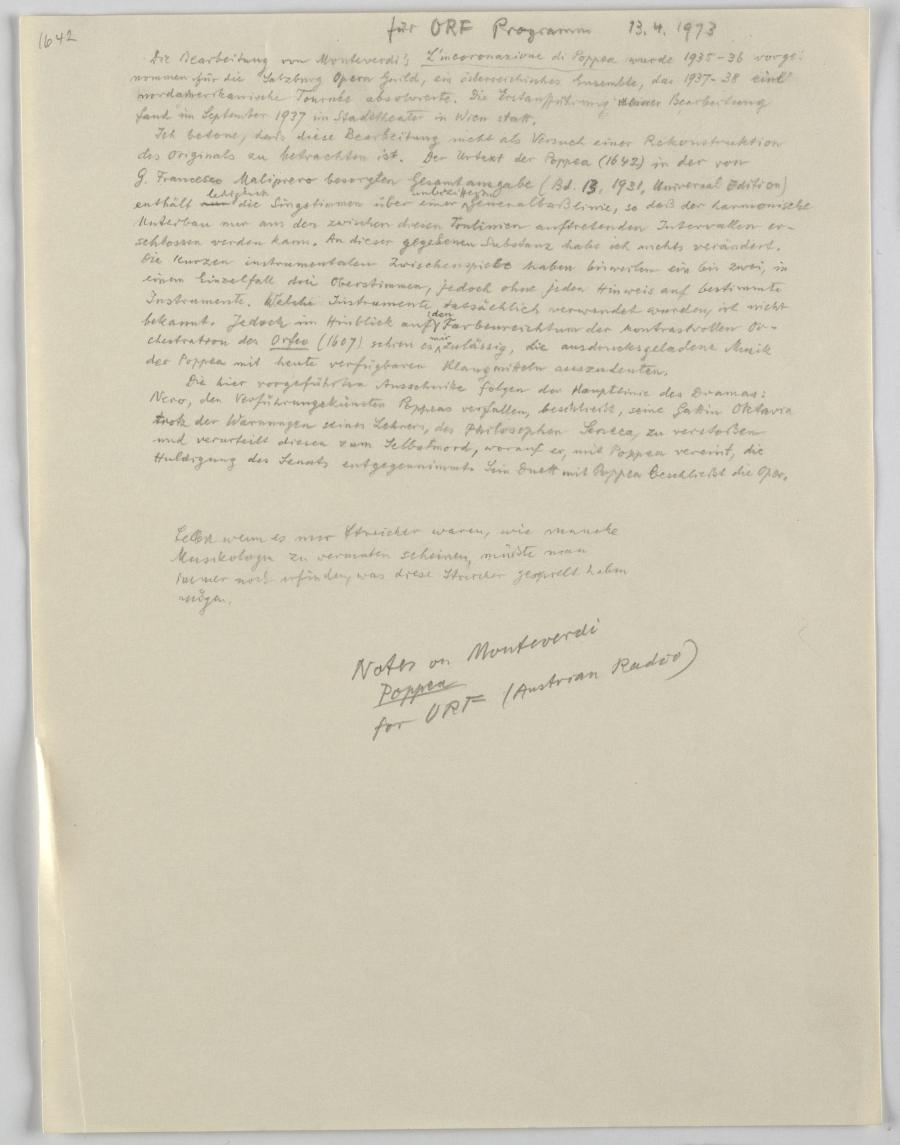 1642
für ORF Programm 13.4.1973
Die Bearbeitung von Monteverdi's L'incoronazione di Poppea wurde 1935-36 vorge-
nommen für die Salzburg Opera Guild, ein österreichisches Ensemble, das 1937-38 eine
nordamerikanische Tournée absolvierte. Die Erstaufführung meiner Bearbeitung
fand im September 1937 im Stadttheater in Wien statt.
Ich betone, dass diese Bearbeitung nicht als Versuch einer Rekonstruktion
des Originals zu betrachten ist. Der Urtext der Poppea (1642) in der von
G. Francesco Malipiero besorgten Gesamtausgabe (Bd. 13, 1931, Universal Edition)
lediglich unbezifferten
enthält nur die Singstimmen über einer Generalbaßlinie, so daß der harmonische
Unterbau nur aus den zwischen diesen Tonlinien auftretenden Intervallen er-
schlossen werden kann. An dieser gegebenen Substanz habe ich nichts verändert.
Die kurzen instrumentalen Zwischenspiele haben bisweilen ein bis zwei, in
einem Einzelfall drei Oberstimmen, jedoch ohne jeden Hinweis auf bestimmte
Instrumente. Welche Instrumente tatsächlich verwendet wurden, ist nicht
bekannt. Jedoch im Hinblick auf den Farbenreichtum der kontrastvollen Or-
chestration des Orfeo (1607) schien es mir zulässig, die ausdrucksgeladene Musik
der Poppea mit heute verfügbaren Klangmitteln auszudeuten.
Die hier vorgeführten Ausschnitte folgen der Hauptlinie des Dramas:
Nero, den Verführungskünsten Poppeas verfallen, beschließt, seine Gattin Oktavia
trotz der Warnungen seines Lehrers, des Philosophen Seneca, zu verstoßen
und verurteilt diesen zum Selbstmord, worauf er, mit Poppea vereint, die
Huldigung des Senats entgegennimmt. Sein Duett mit Poppea beschließt die Oper.
Selbst wenn es nur Streicher waren, wie manche
Musikologen zu vermuten scheinen, müßte man
immer noch erfinden, was diese Streicher gespielt haben
mögen.
Notes on Monteverdi
Poppea
for ORF (Austrian Radio)